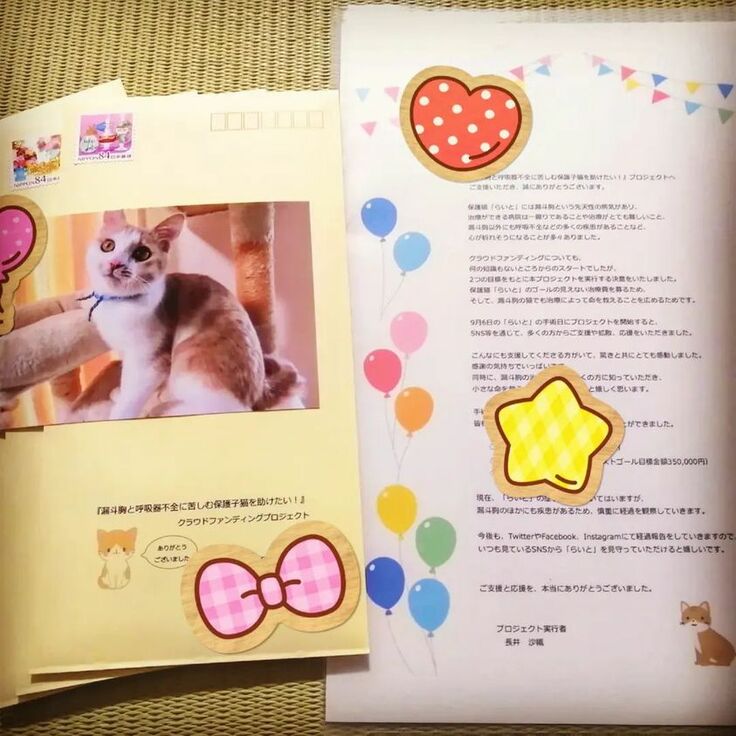 NIPPON 84
NIPPON 84 日本郵便
『漏斗胸と呼吸器不全に苦しむ保護子猫を助けたい！』
クラウドファンディングプロジェクト
ありがとう
ございました
胸と呼吸器不全に苦しむ保護子猫を助けたい！』プロジェクトへ
ご支援いただき、誠にありがとうございます。
保護猫「らいと」には漏斗胸という先天性の病気があり、
治療ができる病院は一握りであることや治療がとても難しいこと、
漏斗胸以外にも呼吸不全などの多くの疾患があることなど、
心が折れそうになることが多々ありました。
クラウドファンディングについても、
何の知識もないところからのスタートでしたが、
2つの目標をもとに本プロジェクトを実行する決意をいたしました。
保護猫「らいと」のゴールの見えない治療費を募るため、
そして、漏斗胸の猫でも治療によって命を救えることを広めるためです。
9月6日の「らいと」の手術日にプロジェクトを開始すると、
SNS等を通じて、多くの方からご支援や拡散、応援をいただきました。
こんなにも支援してくださる方がいて、驚きと共にとても感動しました。
感謝の気持ちでいっぱい
同時に、漏斗胸の くの方に知っていただき、
小さな命を と嬉しく思います。
手術
皆様 とができました。
ストゴール目標金額350,000円)
現在、「らいと」の いてはいますが、
漏斗胸のほかにも疾患があるため、慎重に経過を観察していきます。
今後も、TwitterやFacebook、Instagramにて経過報告をしていきますので、
いつも見ているSNSから「らいと」を見守っていただけると嬉しいです。
ご支援と応援を、本当にありがとうございました。
プロジェクト実行者
長井 沙織